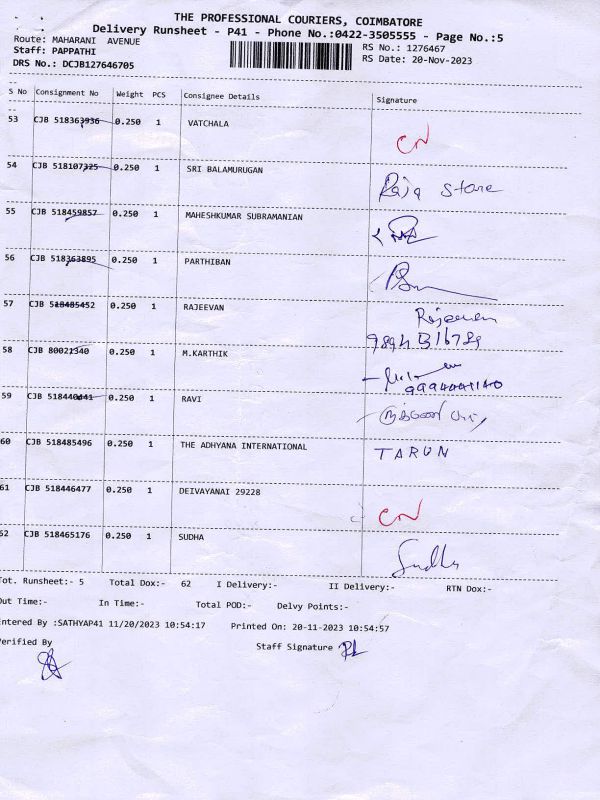 THE PROFESSIONAL COURIERS, COIMBATORE
Delivery Runsheet - P41 - Phone No.:0422-3505555 - Page No.:5
Route: MAHARANI AVENUE
RS No.: 1276467
Staff: PAPPATHI
RS Date: 20-Nov-2023
DRS No.: DCJB127646705
S No Consignment No Weight PCS Consignee Details Signature
53 CJB 518363936 0.250 1 VATCHALA CN
54 CJB 518107325 0.250 1 SRI BALAMURUGAN Raja Store
55 CJB 518459857 0.250 1 MAHESHKUMAR SUBRAMANIAN
56 CJB 518363895 0.250 1 PARTHIBAN
57 CJB 518485452 0.250 1 RAJEEVAN Rajeevan
58 CJB 80021340 0.250 1 M.KARTHIK
59 CJB 518440441 0.250 1 RAVI
60 CJB 518485496 0.250 1 THE ADHYANA INTERNATIONAL TARUN
61 CJB 518446477 0.250 1 DEIVAYANAI 29228 CN
62 CJB 518465176 0.250 1 SUDHA Sudha
Tot. Runsheet:- 5 Total Dox:- 62 I Delivery:- II Delivery:- RTN Dox:-
Out Time:- In Time:- Total POD:- Delvy Points:-
Entered By :SATHYAP41 11/20/2023 10:54:17 Printed On: 20-11-2023 10:54:57
Verified By Staff Signature